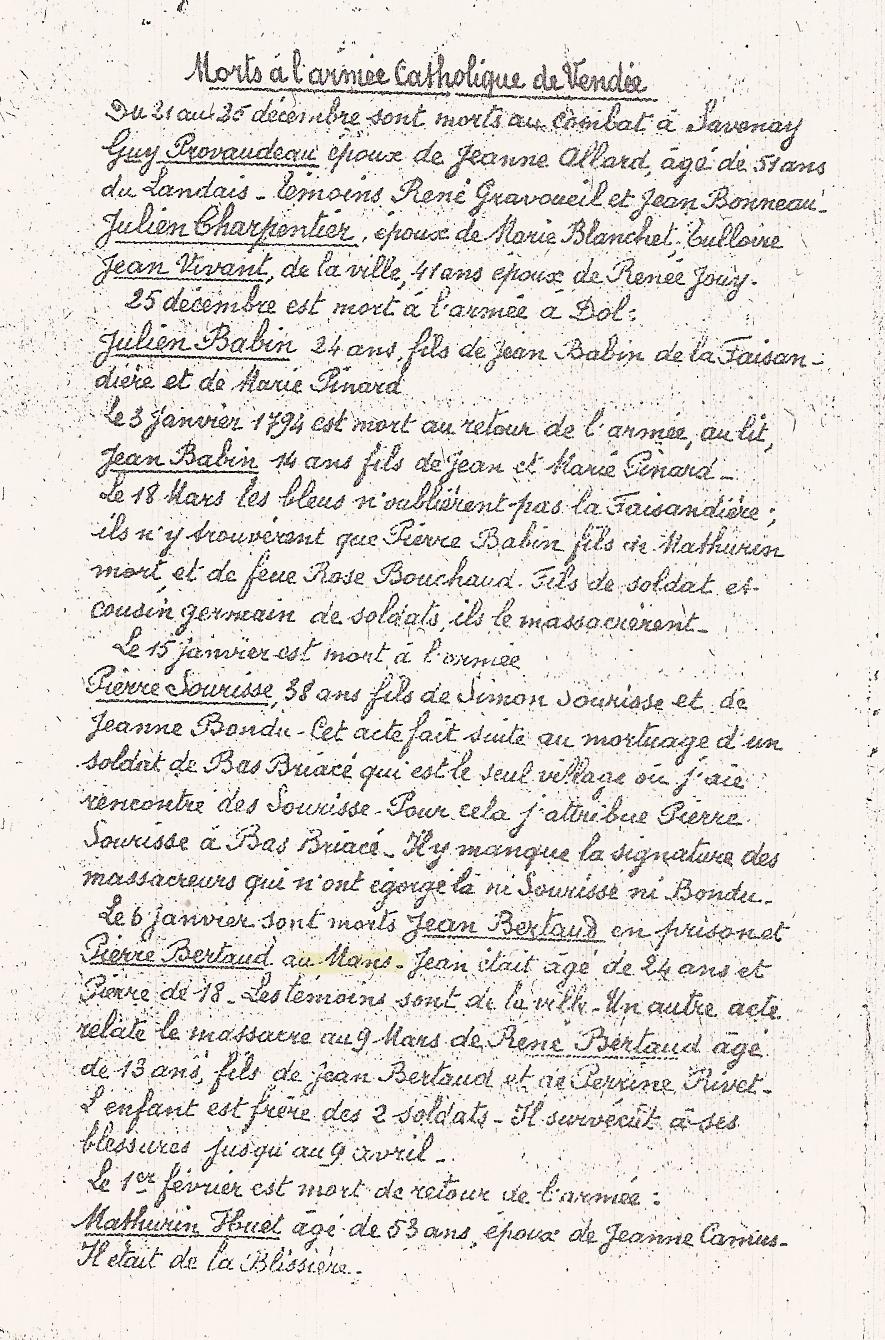 Morts à l'armée Catholique de Vendée
Du 21 au 25 décembre sont morts au combat à Savenay
Guy Provaudeau époux de Jeanne Allard, âgé de 51 ans
du Landais - témoins René Gravoueil et Jean Bonneau -
Julien Charpentier, époux de Marie Blanchet, Tulloire
Jean Vivant, de la ville, 41 ans époux de Renée Jouy.
25 décembre est mort à l'armée à Dol :
Julien Babin 24 ans, fils de Jean Babin de la Faisan-
dière et de Marie Pinard
Le 3 janvier 1794 est mort au retour de l'armée, au lit,
Jean Babin 14 ans fils de Jean et Marie Pinard -
Le 18 Mars les bleus n'oublièrent pas la Faisandière ;
ils n'y trouvèrent que Pierre Babin fils de Mathurin
mort, et de feue Rose Bouchaud. Fils de soldat et
cousin germain de soldats, ils le massacrèrent -
Le 15 janvier est mort à l'armée
Pierre Sourisse, 38 ans fils de Simon Sourisse et de
Jeanne Bondu - Cet acte fait suite au mortuage d'un
soldat de Bas Briacé qui est le seul village où j'aie
rencontré des Sourisse - Pour cela j'attribue Pierre
Sourisse à Bas Briacé - Il y manque la signature des
massacreurs qui n'ont égorgé là ni Sourisse ni Bondu -
Le 6 janvier sont morts Jean Bertaud en prison et
Pierre Bertaud au Mans - Jean était âgé de 24 ans et
Pierre de 18 - Les témoins sont de la ville - Un autre acte
relate le massacre au 9 Mars de René Bertaud âgé
de 13 ans, fils de Jean Bertaud et de Perrine Rivet -
L'enfant est frère des 2 soldats - Il survécût à ses
blessures jusqu'au 9 avril -
Le 1er février est mort de retour de l'armée :
Mathurin Huet âgé de 53 ans, époux de Jeanne Camus -
Il était de la Blissière -